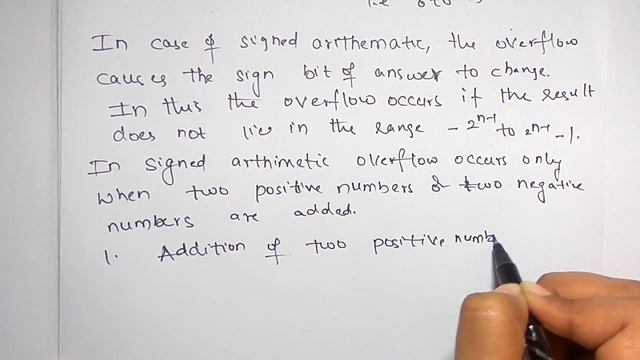 In case of signed arithematic, the overflow
causes the sign bit of answer to change.
In this the overflow occurs if the result
does not lie in the range -2^n-1 to 2^n-1 -1.
In signed arthimetic overflow occurs only
when two positive numbers & two negative
numbers are added.
1. Addition of two positive numb